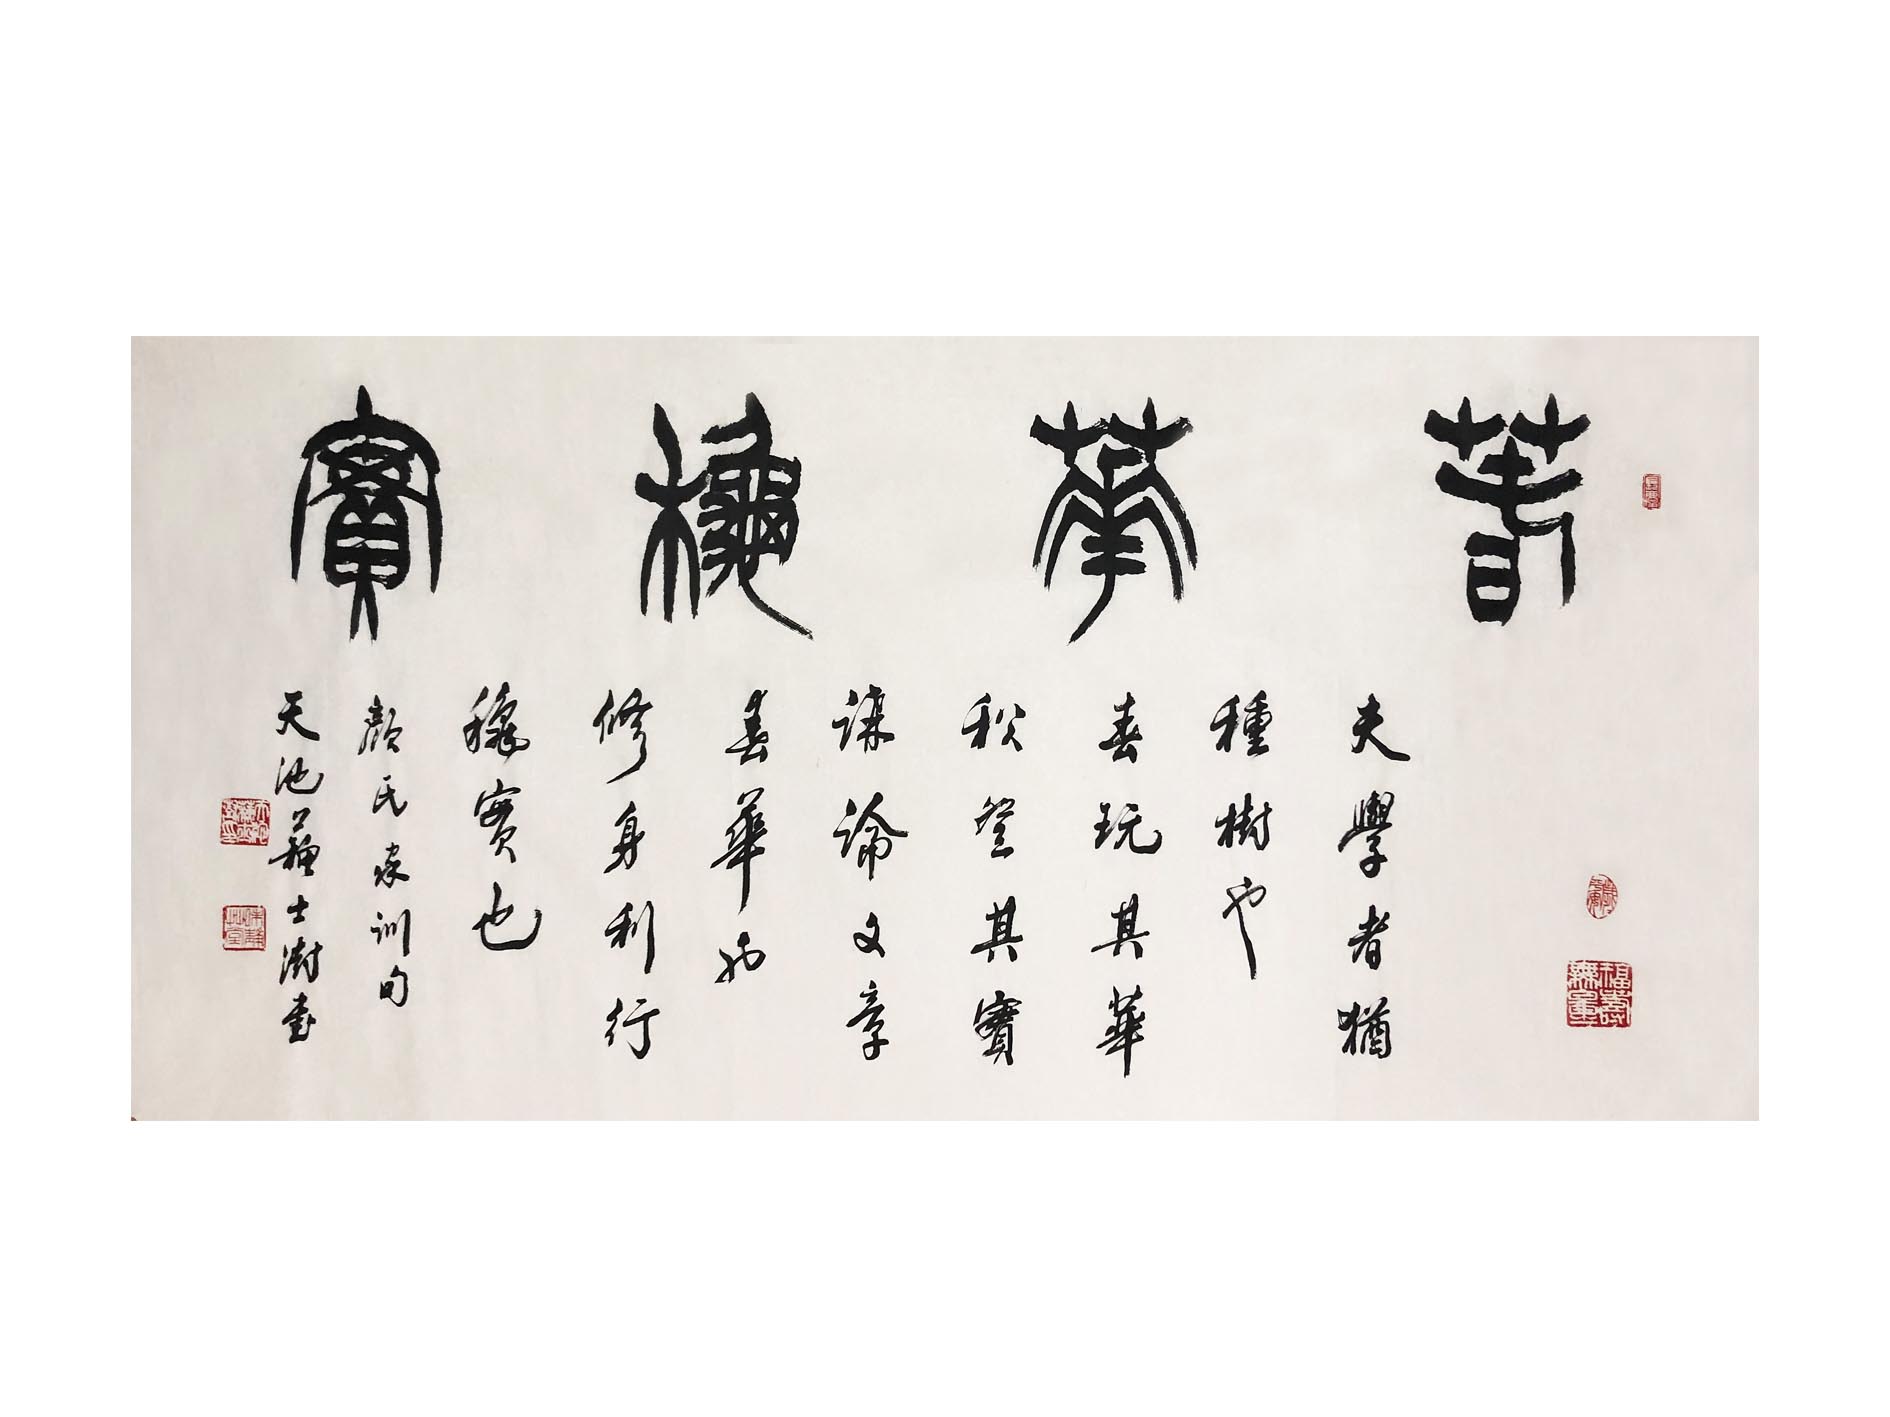 萅華穐實
夫學者猶
種樹也
春玩其華
秋登其實
講論文章
春華也
修身利行
穐實也
顏氏家訓句
天池蘇士澍書
福壽無量